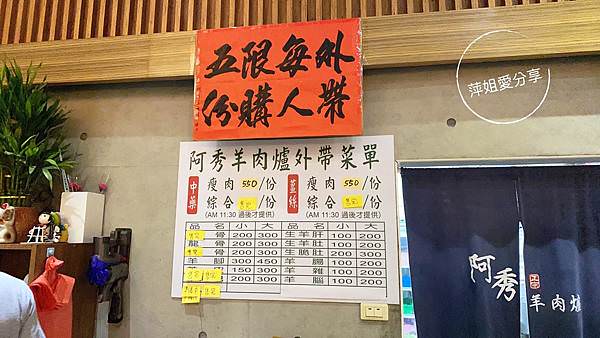 外帶
每人
限購
五份
萍姐愛分享
阿秀羊肉爐外帶菜單
中藥 瘦肉 550/份 薑絲 瘦肉 550/份
綜合 售完/份 綜合 售完/份
(AM 11:30 過後才提供) (AM 11:30 過後才提供)
品名 小 大 品名 小 大
售完 骨 200 300 生羊肝 100 200
龍骨 200 300 生羊肚 100 200
售完 骨 200 300 生脆肚 100 200
羊腳 300 450 羊腸 100 200
150 300 羊雜 100 200
200 300 羊腦 100 200
阿秀
羊肉爐